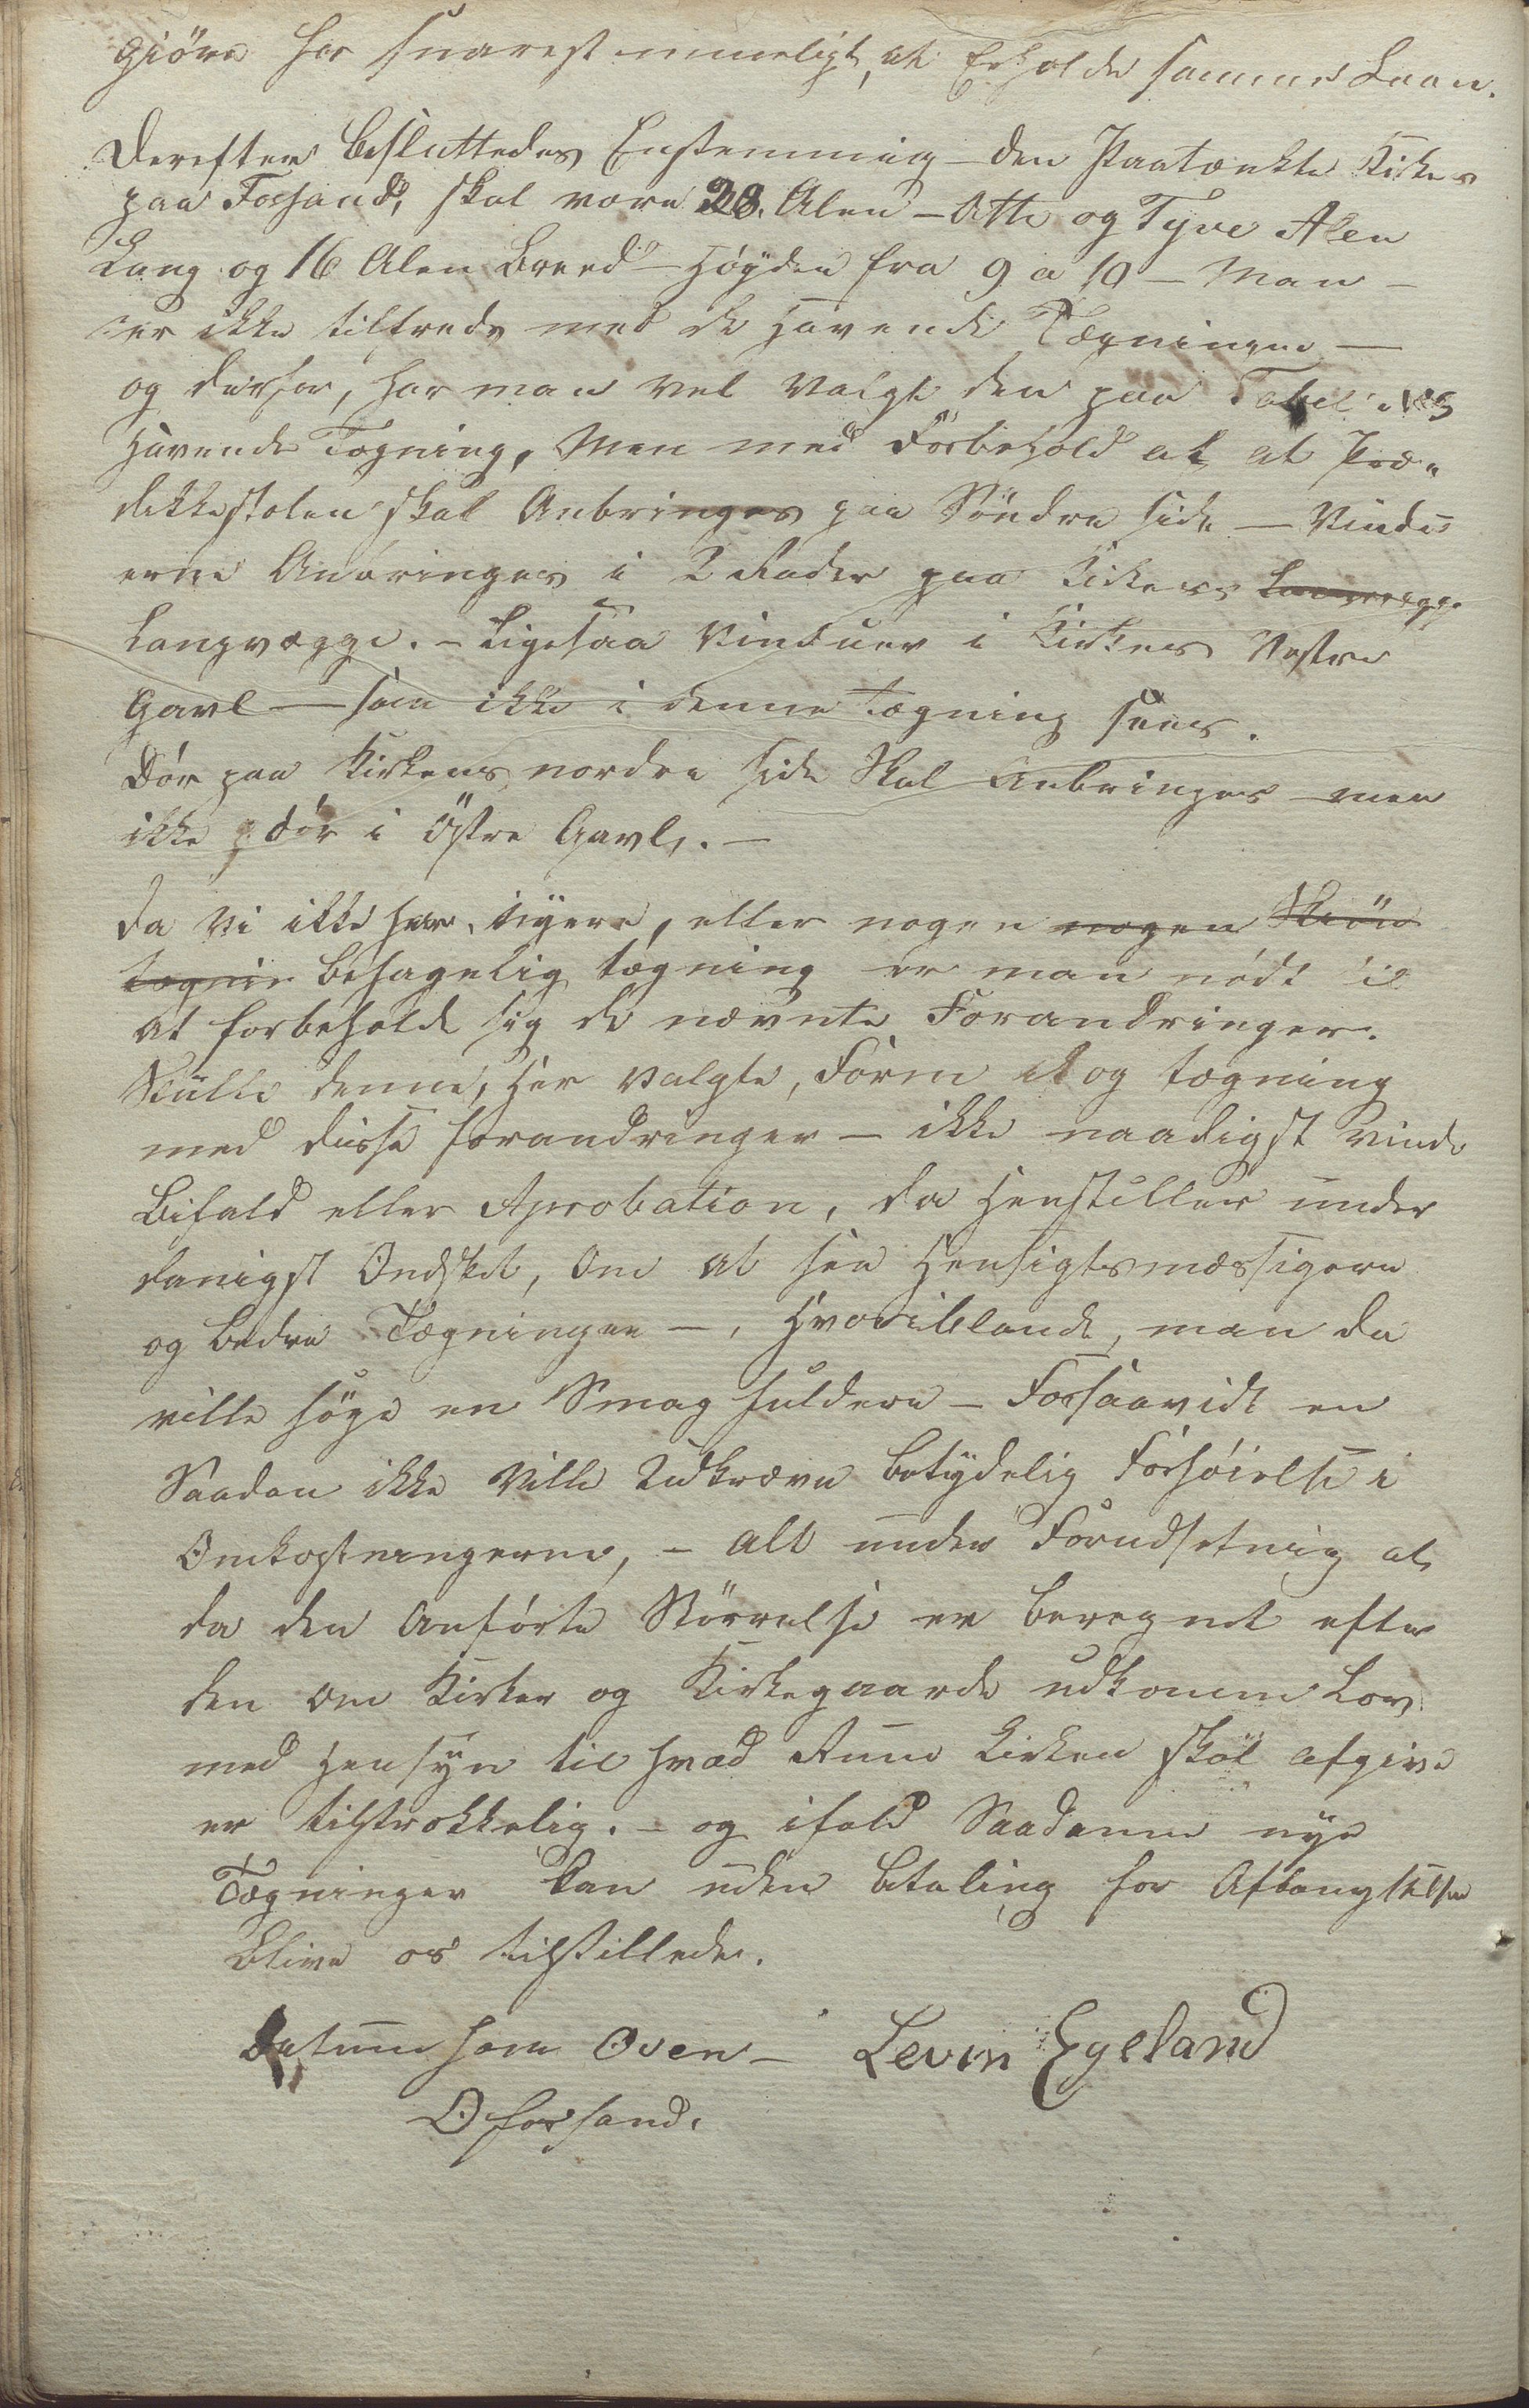 giöre for snarest mueligt, at Erholde samme Laan.
Derefter besluttedes Enstemmig – den Paatænkte Kirke
paa Fossand, skal være 28. Alen – Otte og Tyve Alen
Lang og 16 Alen Breed – Høyden fra 9 a 10 – Man –
er ikke tilfreds med de Havende Tægninger –
og derfor, har man vel Valgt den paa Tabel N 5
Havende Tægning, Men med Forbehold at at Præ„
dikkestolen skal Anbringes paa Söndre side – Vindu
erne Anbringes i 2 Rader paa Kirkens Langvægge
Langvægge. – Ligesaa Vinduer i Kirkens Vestre
Gavl – som ikke i denne Tægning sees.
Dör paa Kirkens nordre side Skal Anbringes men
ikke dör i Östre Gavl. –
da Vi ikke har nyere, eller nogen nogen Skiön
tægnin behagelig tægning er man nödt til
at forbeholde sig de nævnte Forandringer.
Skulle denne, her valgte, Form og tægning
med disse forandringer – ikke naadigst vinde
Bifald eller Aprobation, da Henstilles under
danigst Ondsket, Om at see Hensigtsmæssigere
og bedre Tægninger –, Hvoriblandt, man da
ville söge en Smag fuldere – Forsaavidt en
Saadan ikke Ville Udkræve betydelig Forhöielse i
Omkostningerne, – alt under Forudsetnig at
da den Anförte Störrelse er beregnet efter
den om Kirker og Kirkegaarde udkomne Lov
med Hensyn til hvad Rum Kirken skal afgive
er tilstrækkelig. – og ifald Saadanne nye
Tægninger kan uden betaling for Afbenyttelsen
blive os tilstillede.
Datum som Oven – Levin Egeland
O Forsand.